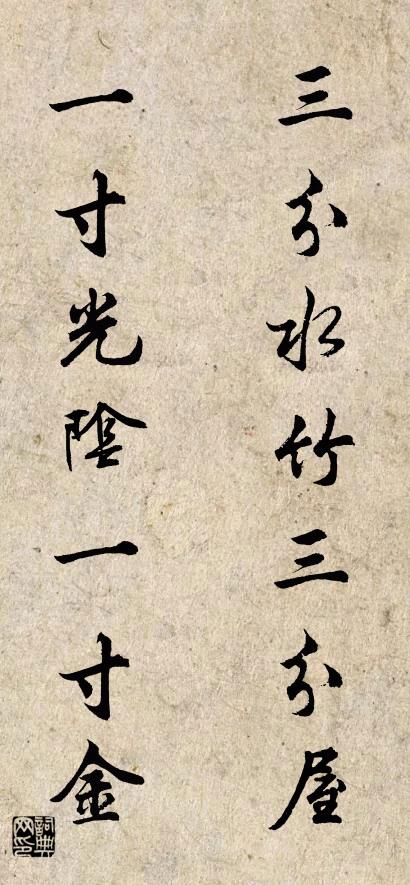 三分水竹三分屋
一寸光陰一寸金
詞典網印